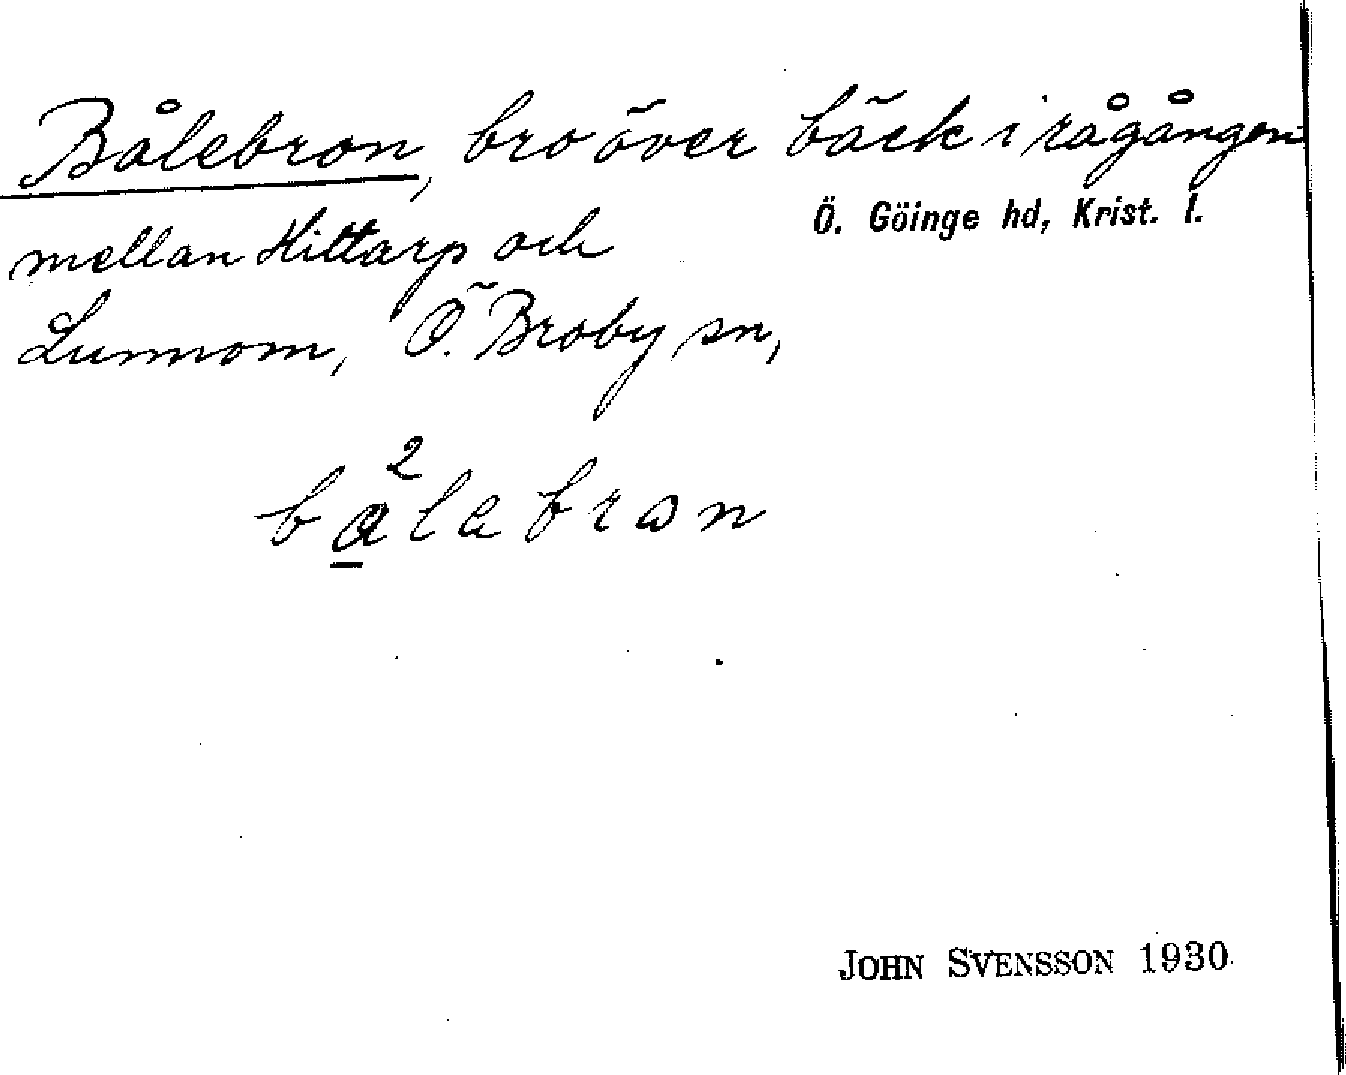 Bålebron, bro över bäck i rågången
Ö. Göinge hd, Krist. l.
mellan Hittarp och
Lunnom, Ö. Broby sn,
2
balabron
JOHN SVENSSON 1930